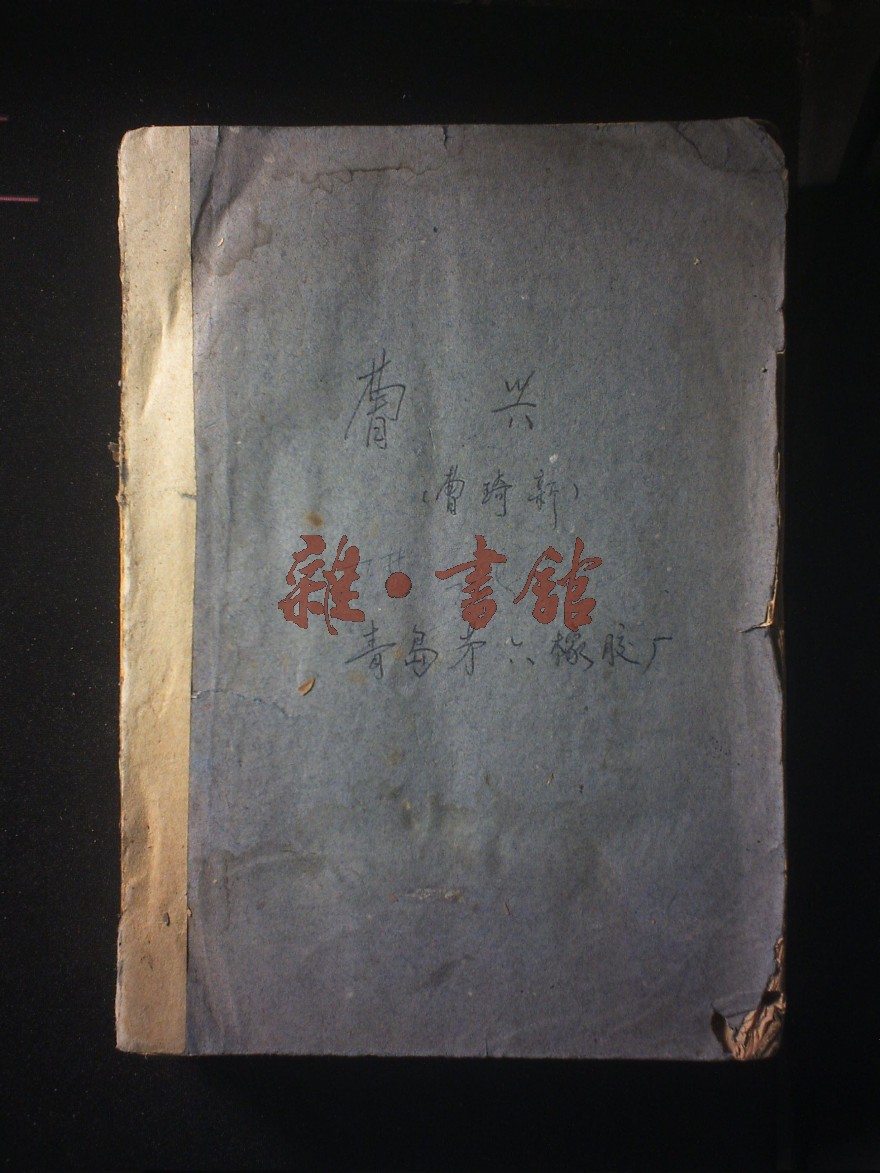 兴
(曹琦新)
雜·書舘
青岛第六橡胶厂